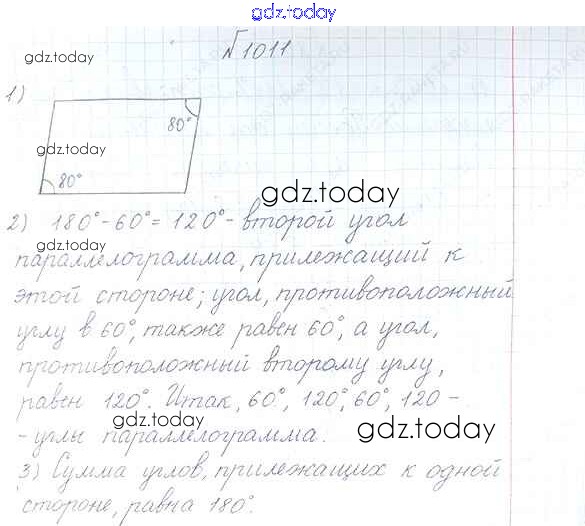 gdz.today
gdz.today
№1011
1)
80°
gdz.today
80°
gdz.today
2) 180°-60°=120°- второй угол
gdz.today
параллелограмма, прилежащий к
этой стороне; угол, противоположный
углу в 60°, также равен 60°, а угол,
противоположный второму углу,
равен 120°. Итак, 60°, 120°, 60°, 120 -
gdz.today
gdz.today
- углы параллелограмма.
3) Сумма углов, прилежащих к одной
стороне, равна 180°.